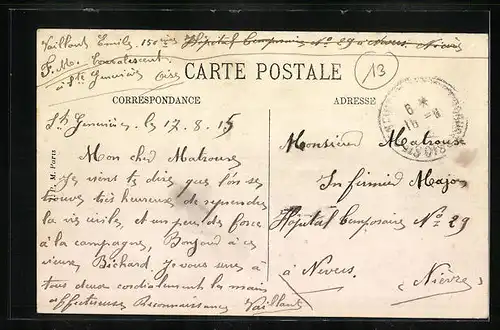 Vaillant Emile, 150ème Hôpital Temporaire No 29 à Nevers Nièvre
F. M. Convalescent
à Ste Geneviève Oise
13
CARTE POSTALE
CORRESPONDANCE
ADRESSE
Ste Geneviève, le 17.8.15
Mon cher Matrouse
Je viens te dire que l'on se
trouve très heureux de reprendre
la vie civile, et un peu de force
à la campagne, Bonjour à ce
vieux Bichard. Je vous serre à
tous deux cordialement les mains
affectueuses Reconnaissances Vaillant
Monsieur Matrouse
Infirmier Major
Hôpital Temporaire No 29
à Nevers
(Nièvre)
P. M. Paris